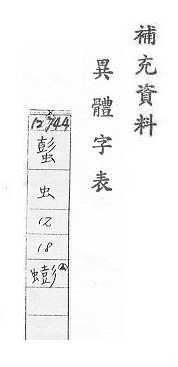 補充資料
異體字表
12744
蟚
虫
12
18
蟛